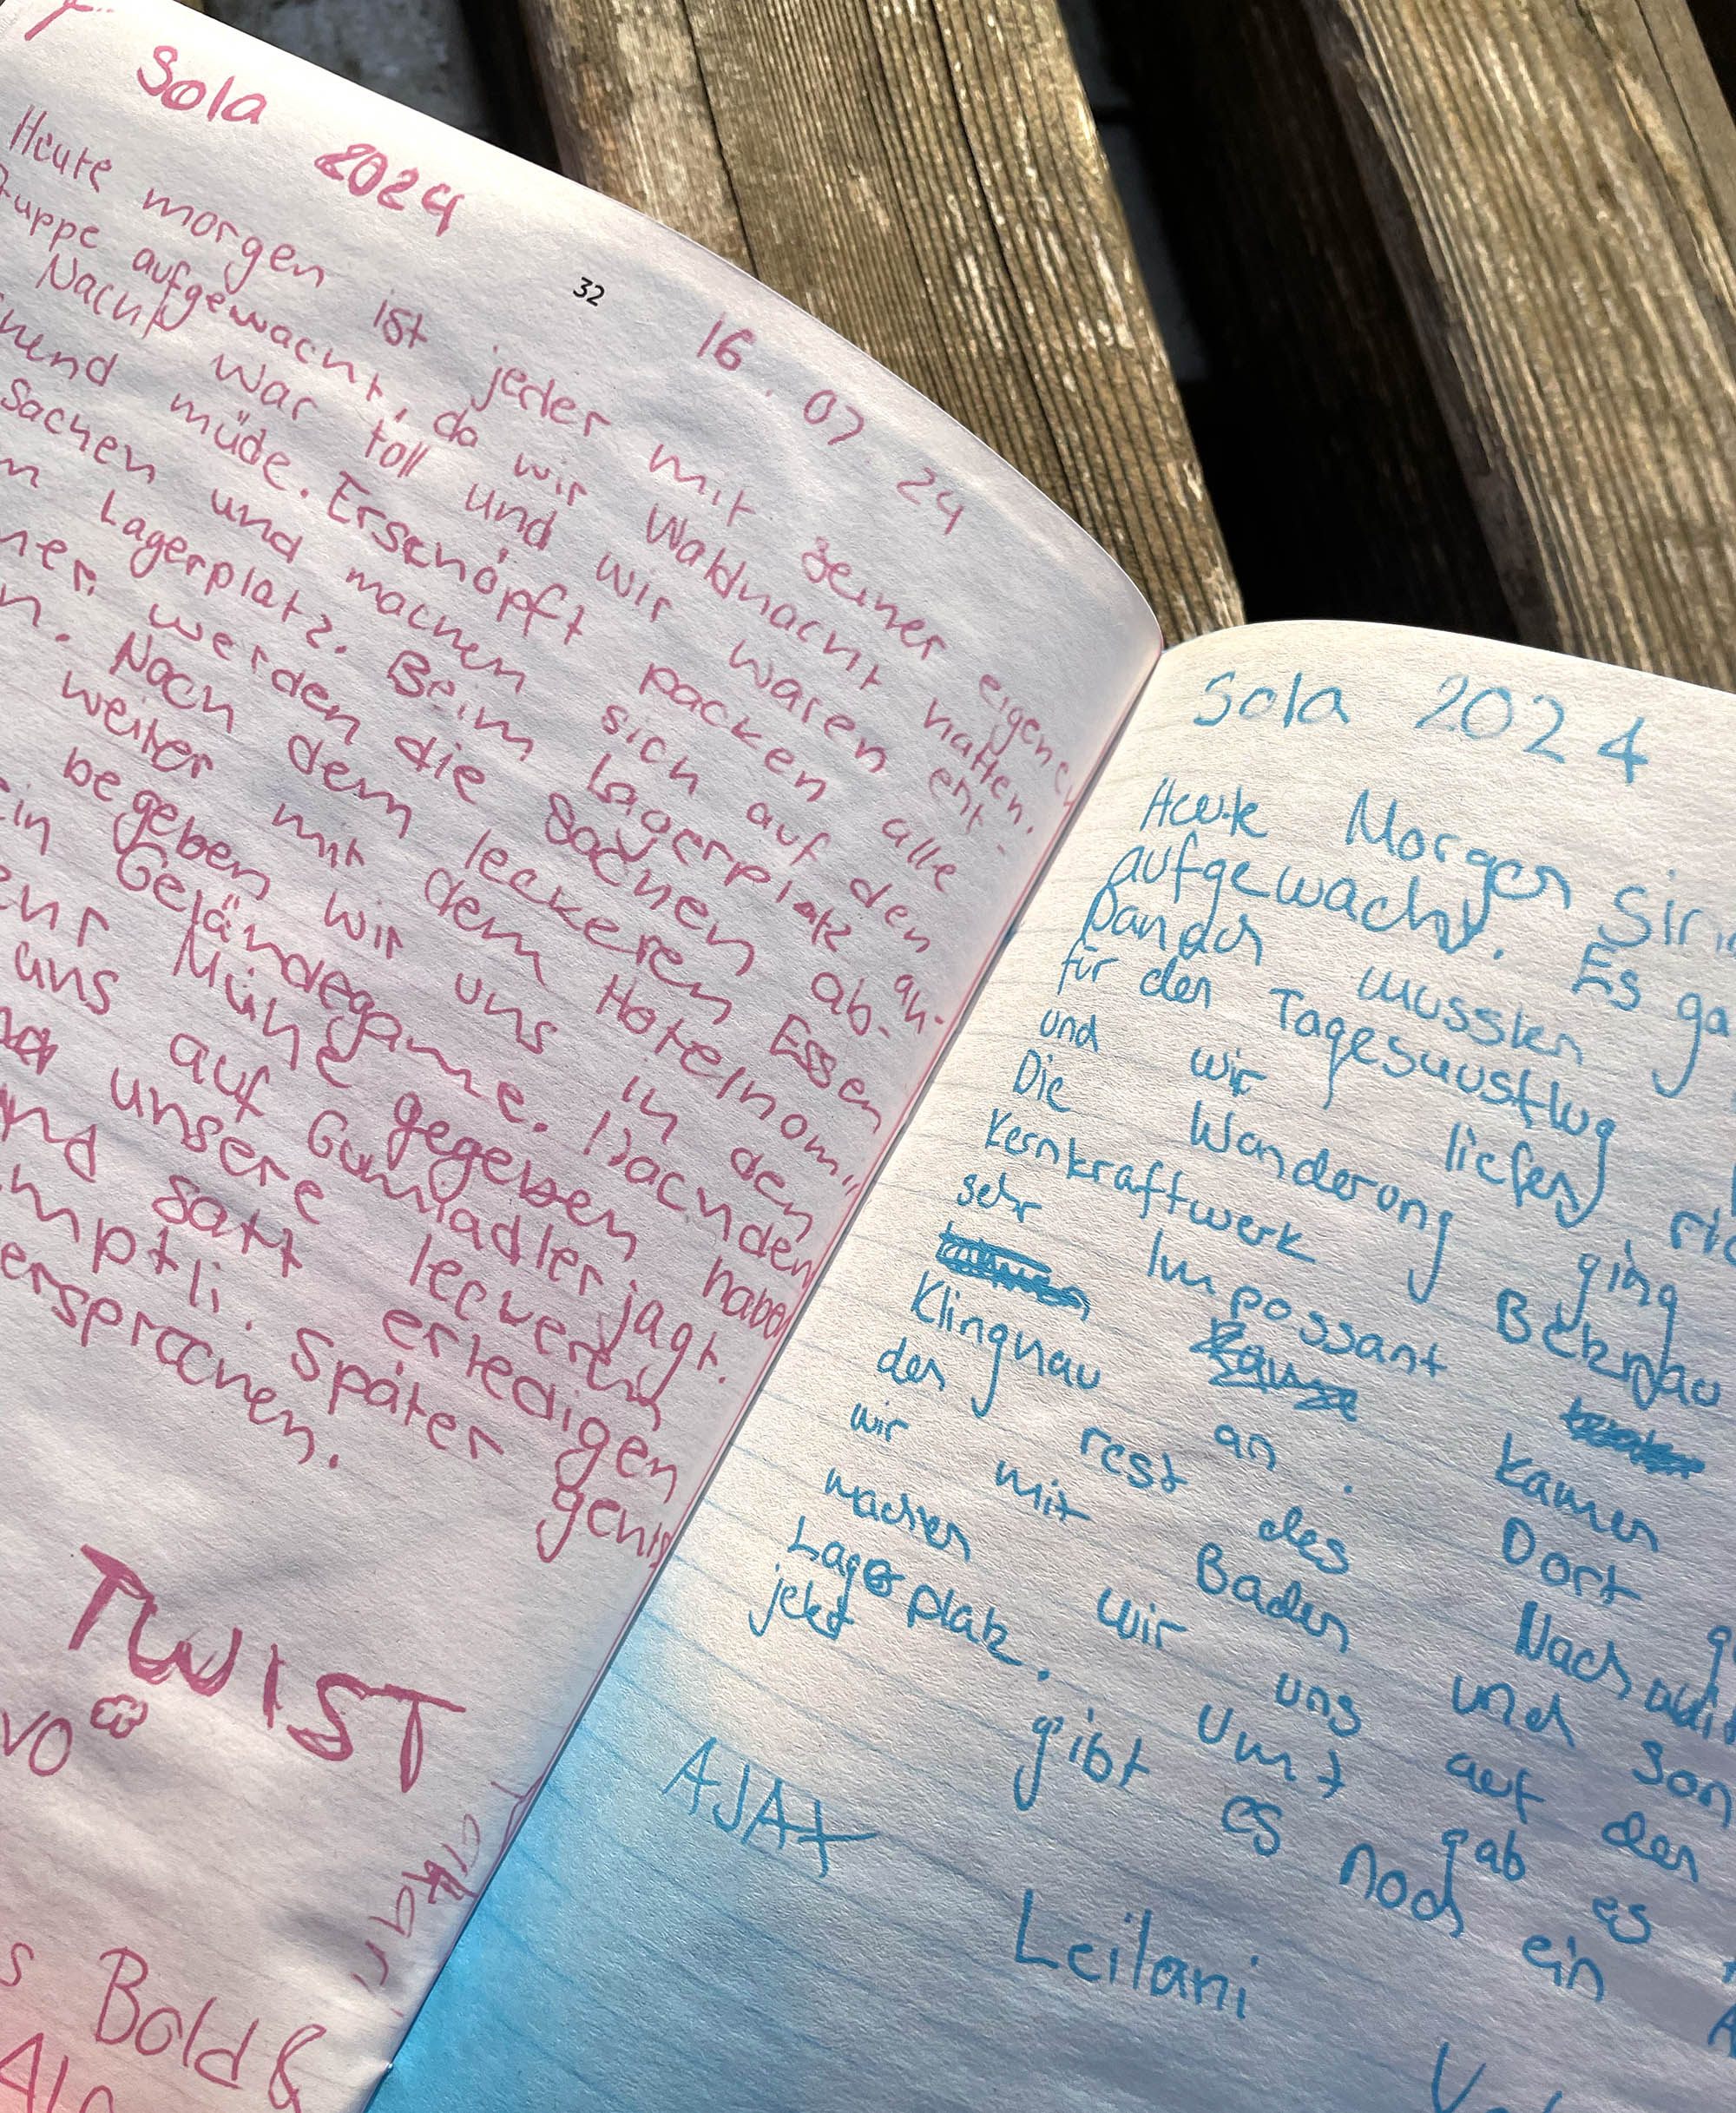 Sola 2024
32
16.07 24
Heute morgen ist jeder mit seiner eigene
aufgewacht, da wir Waldnacht hatten.
Nacht war toll und wir waren ent-
müde. Erschöpft packen alle
Sachen und machen sich auf den
Lagerplatz. Beim Lagerplatz an-
werden die Sachen ab-
Nach dem leckeren Essen
weiter mit dem Hotelnom"
begeben wir uns in den
ein Geländegame. Nachdem
Mühe gegeben haben
uns auf Gumiadlerjagt.
unsere leckereien
und satt erledigen
Ämptli. Später
TWIST
Bold &
Sola 2024
Heute Morgen sind
aufgewacht. Es ga
Danach mussten
für den Tagesausflug
und wir liefen
Die Wanderung ging
Kernkraftwerk Beznau
sehr Impossant
kamen
Klingnau an. Dort
den rest des Nachmi
wir mit Baden und son
machen wir uns auf den
Lagerplatz. Umt gab es
jetzt gibt es noch ein
AJAX
Leilani